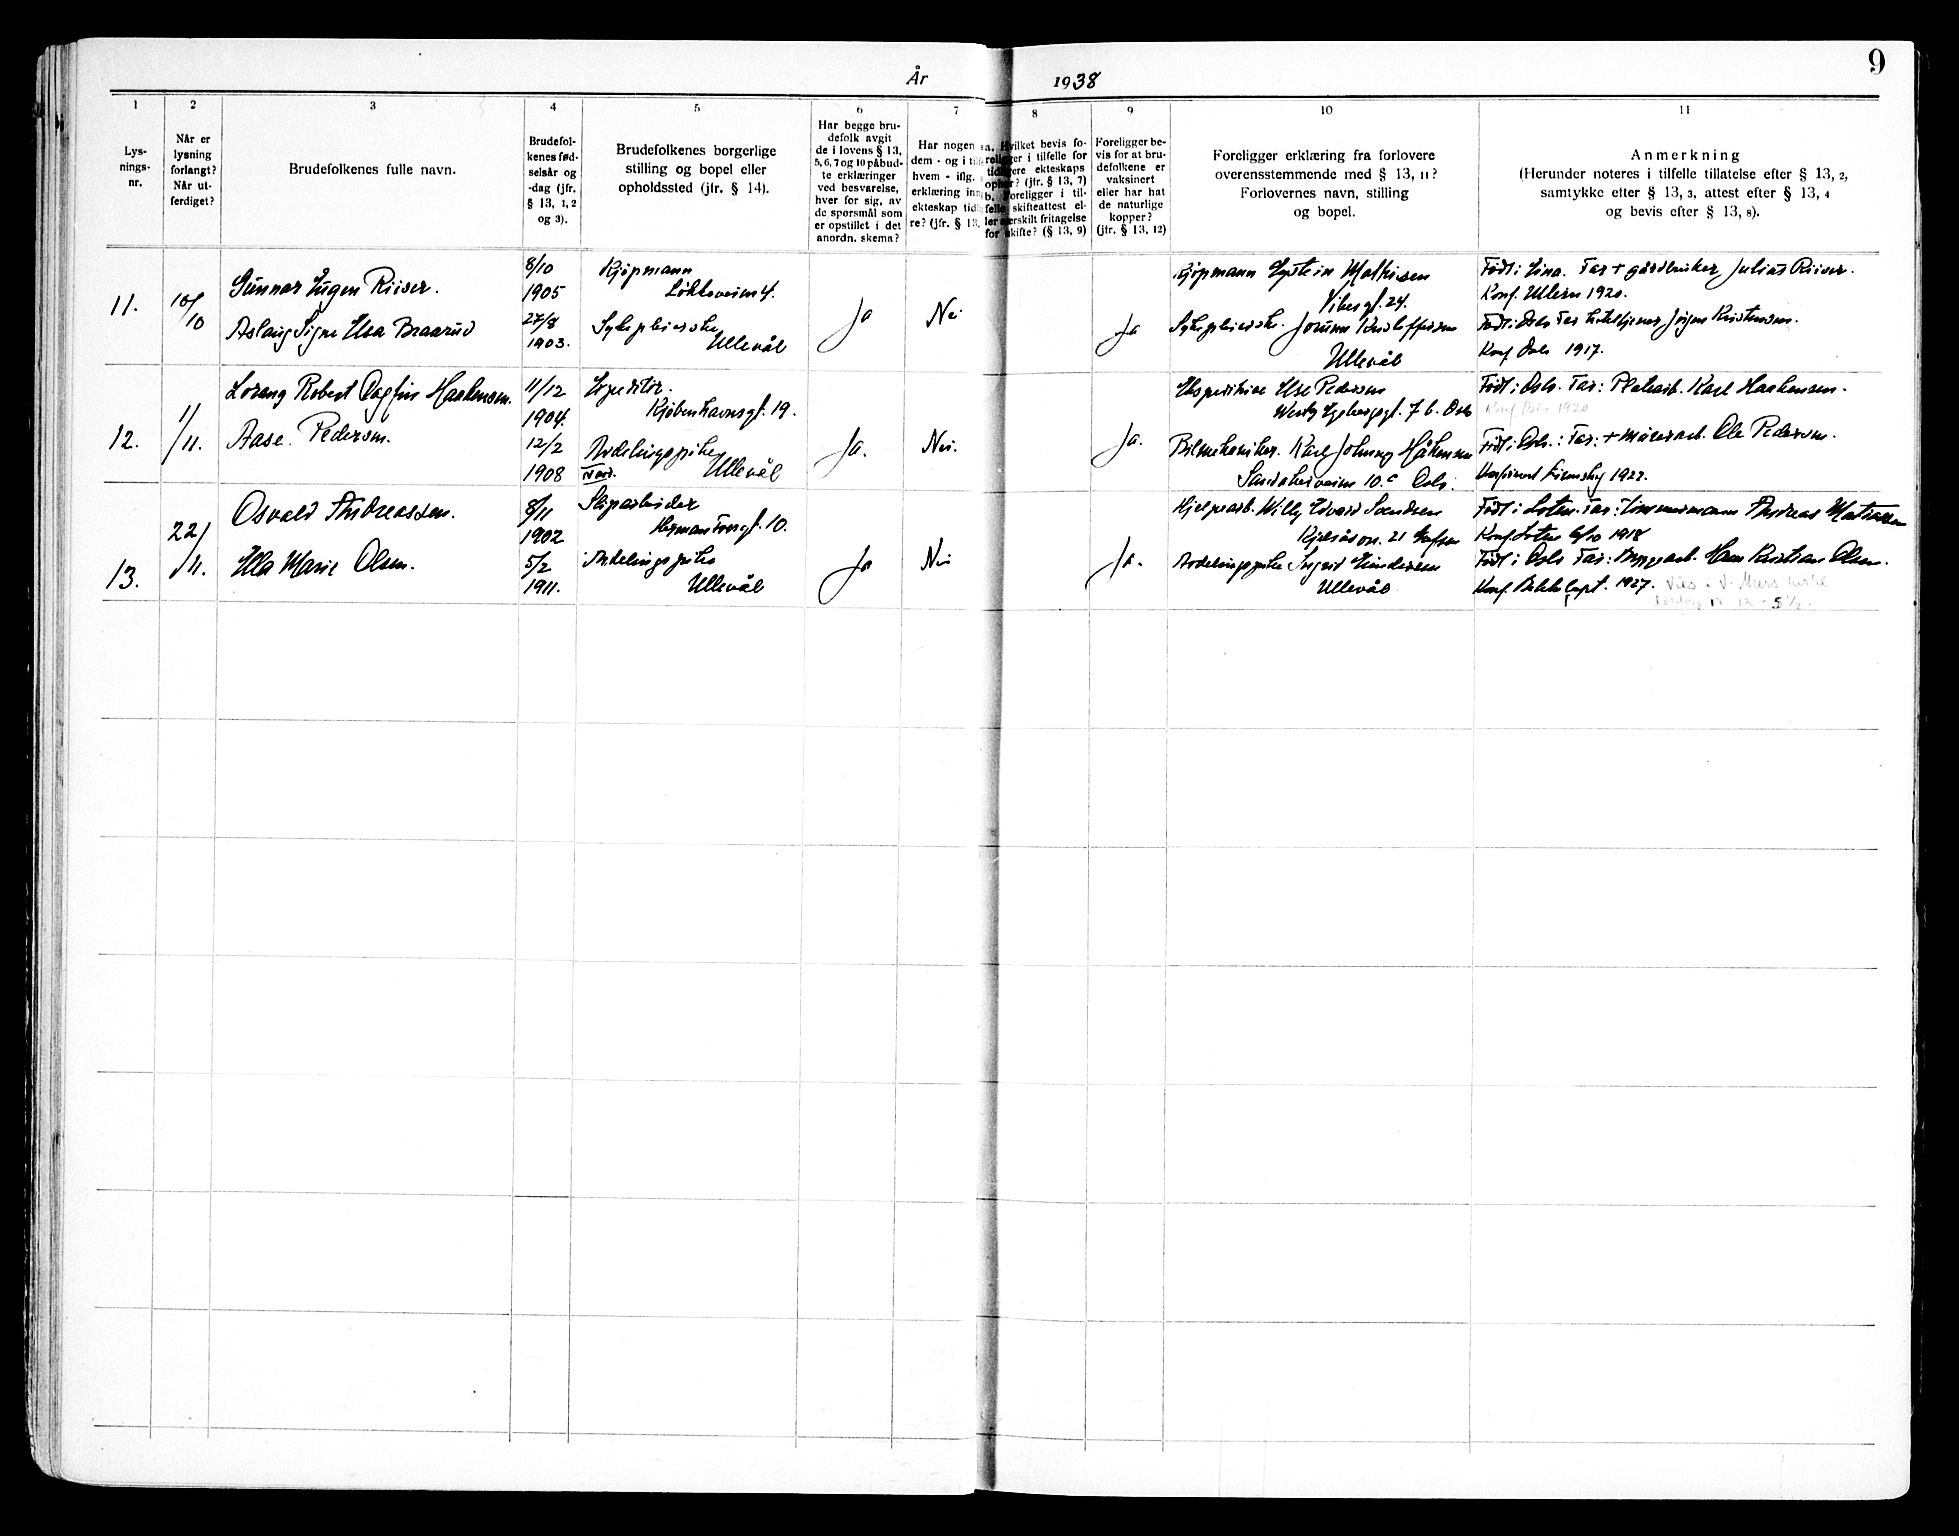 9
År 1938
1 2 3 4 5 6 7 8 9 10 11
Lys-
nings-
nr.
Når er
lysning
forlangt?
Når ut-
ferdiget?
Brudefolkenes fulle navn.
Brudefol-
kenes fød-
selsår og
-dag (jfr.
§ 13, 1, 2
og 3).
Brudefolkenes borgerlige
stilling og bopel eller
opholdssted (jfr. § 14).
Har begge bru-
defolk avgit
de i lovens § 13,
5, 6, 7 og 10 påbud-
te erklæringer
ved besvarelse,
hver for sig, av
de spørsmål som
er opstillet i det
anordn. skema?
Har nogen
dem - og i til
hvem - iflg.
erklæring inn
ekteskap tid
re? (jfr. § 13,
a. Hvilket bevis fo-
religger i tilfelle for
tidligere ekteskaps
ophør? (jfr. § 13, 7)
b. Foreligger i til-
felle skifteattest el-
ler særskilt fritagelse
for skifte? (§ 13, 9)
Foreligger be-
vis for at bru-
defolkene er
vaksinert
eller har hat
de naturlige
kopper?
(jfr. § 13, 12)
Foreligger erklæring fra forlovere
overensstemmende med § 13, 11?
Forlovernes navn, stilling
og bopel.
Anmerkning
(Herunder noteres i tilfelle tillatelse efter § 13, 2,
samtykke efter § 13, 3, attest efter § 13, 4
og bevis efter § 13, 8).
11.
10/10
Gunnar Eugen Riiser.
8/10
1905
Kjøpmann
Løkkeveien 4.
Aslaug Signe Elsa Braarud
27/8
1903.
Sykepleierske
Ullevål
Ja
Nei
Ja
Kjøpmann Eystein Mathisen
Vibesgt. 24.
Sykepleierske. Jorunn Kristoffersen
Ullevål
Født i Eina. Far + gårdbruker Julius Riiser.
Konf. Ullern 1920.
Født i Oslo Far hotelltjener Jørgen Kristensen.
Konf Oslo 1917.
12.
1/11.
Lorang Robert Dagfin Haakensen.
11/12
1904.
Expeditør.
Kjøbenhavnsgt. 19.
Aase. Pedersen.
12/2
1908
Avdelingspike
Ullevål
Ja.
Nei.
Ja.
Ekspeditrise Else Pedersen
Westy Egebergsgt. 7 b. Oslo
Bilmekaniker. Karl Johnny Håkensen
Sandakerveien 10.c Oslo.
Født i Oslo. Far: Platearb. Karl Haakensen.
Konf Oslo 1920
Født i Oslo.: Far: + murerarb. Ole Pedersen.
1922.
13.
22/11.
Osvald Andreassen.
8/11
1902
Skiparbeider
Herman Fossgt. 10.
Ella Marie Olsen.
5/2
1911.
Avdelingspike
Ullevål
Ja
Nei
Ja.
Hjelpearb. Willy Edvard Svendsen
Kjelsåsvn. 21 Grefsen
Avdelingspike Ingrid Hindersen
Ullevål
Født i Loten. Far: Tømmermann Andreas Matiassen
Konf. Loten 6/10 1918
Født i Oslo Far: Byggearb. Hans Kristian Olsen.
Konf. 1927.